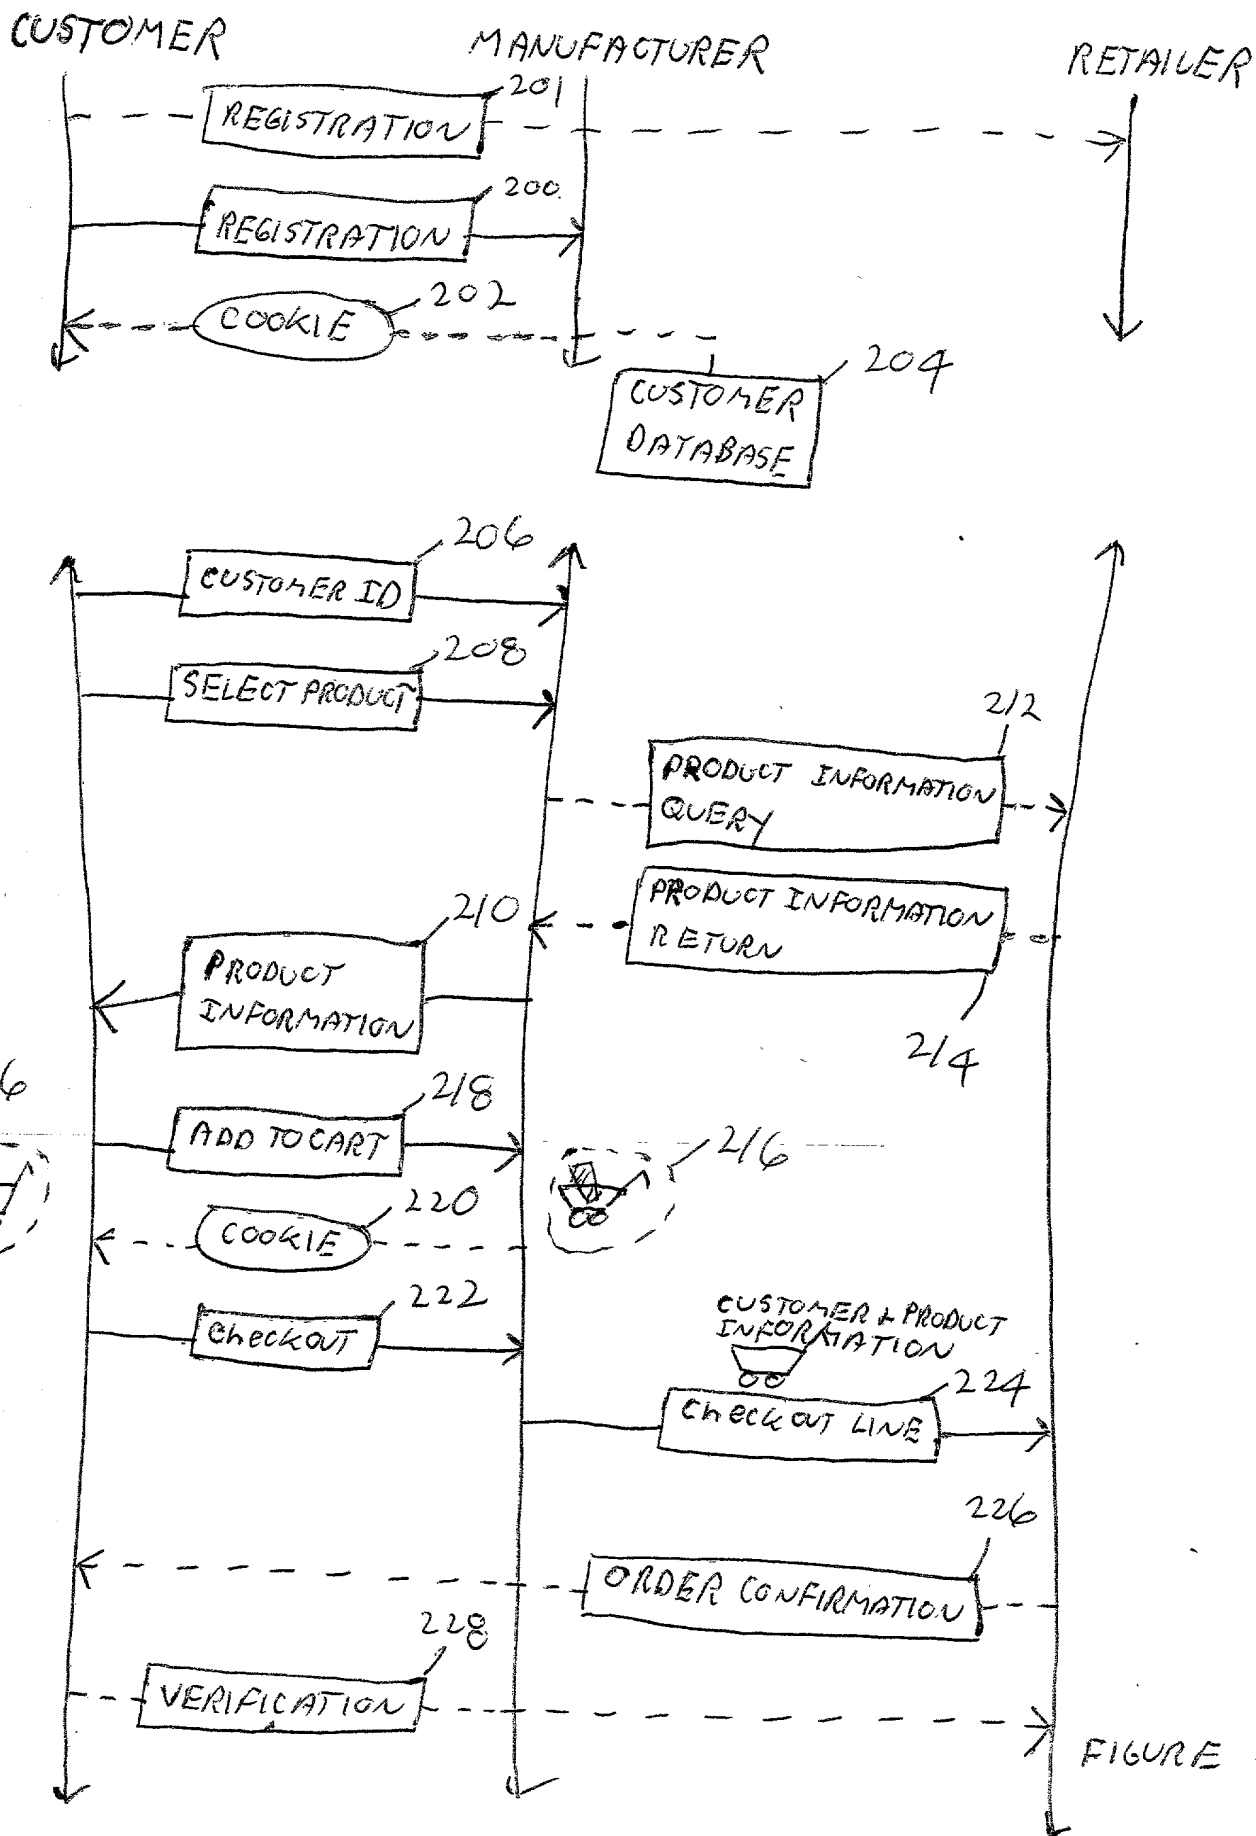 CUSTOMER
MANUFACTURER
RETAILER
201
REGISTRATION
200
REGISTRATION
202
COOKIE
204
CUSTOMER
DATABASE
206
CUSTOMER ID
208
SELECT PRODUCT
212
PRODUCT INFORMATION
QUERY
PRODUCT INFORMATION
RETURN
214
210
PRODUCT
INFORMATION
6
218
ADD TO CART
216
220
COOKIE
222
CheckOUT
CUSTOMER & PRODUCT
INFORMATION
224
CheckOUT LINE
226
ORDER CONFIRMATION
228
VERIFICATION
FIGURE